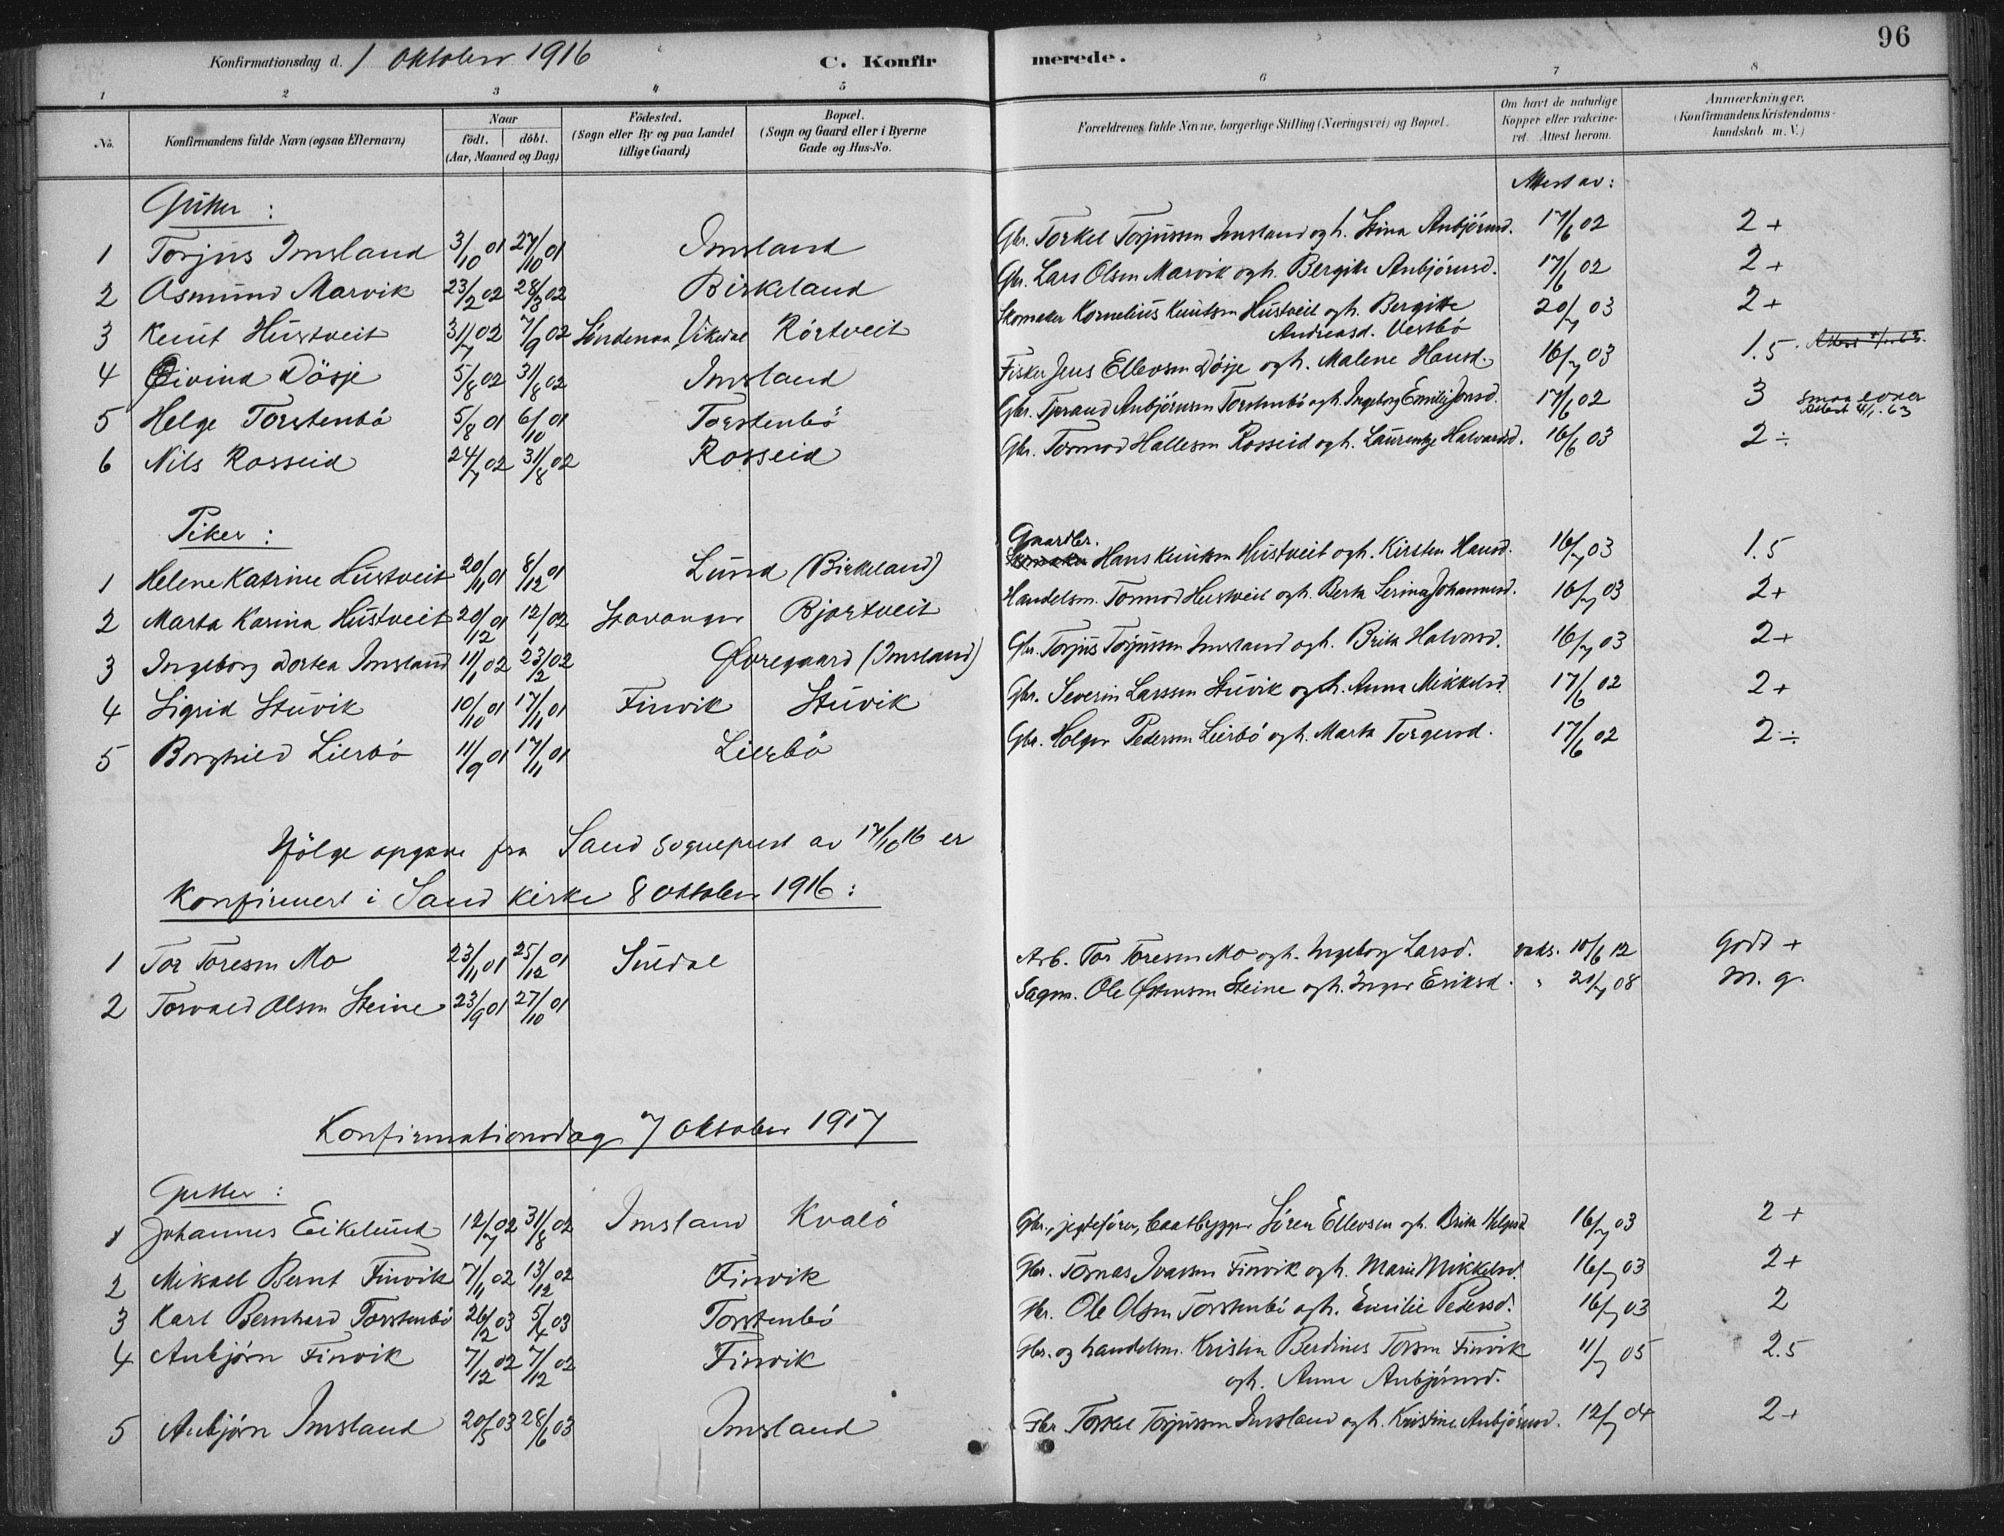 96
Konfirmationsdag d. 1 oktober 1916 C. Konfirmerede.
1 2 3 4 5 6 7 8
No. Konfirmandens fulde Navn (ogsaa Efternavn) Naar født. døbt. (Aar, Maaned og Dag) Fødested. (Sogn eller By og paa Landet tillige Gaard) Bopæl. (Sogn og Gaard eller i Byerne Gade og Hus-No. Forældrenes fulde Navne, borgerlige Stilling (Næringsvei) og Bopæl. Om havt de naturlige Kopper eller vakcineret. Attest herom. Anmærkninger. (Konfirmandens Kristendomskundskab m. V.)
Gutter : Attest av:
1 Torjus Imsland 3/10 01 27/10 01 Imsland Gbr. Torkel Torjussen Imsland og h. Stina Anbjörnsd. 17/6 02 2+
2 Asmund Marvik 23/2 02 28/3 02 Birkeland Gbr. Lars Olsen Marvik og h. Bergite Anbjörnsd. 17/6 02 2+
3 Knut Hustveit 31/7 02 7/9 02 Söndenaa Vikedal Rörtveit Skomaker Kornelius Knutsen Hustveit og h. Bergitte Andreasd. Vestbö 20/7 03 2+
4 Øivind Dösje 5/8 02 31/8 02 Imsland Fisker Jens Ellevsen Dösje og h. Malene Hansd. 16/7 03 1.5
5 Helge Torstenbö 5/8 01 6/10 01 Torstenbö Gbr. Tjerand Anbjörnsen Torstenbö og h. Ingeborg Emilie Jensd. 17/6 02 3
6 Nils Rosseid 24/7 02 31/8 02 Rosseid Gbr. Tormod Hallesen Rosseid og h. Laurentze Halvardsd. 16/6 03 2÷
Piker :
1 Helene Katrine Hustveit 20/11 01 8/12 01 Lund (Birkeland) Gaardbr. Hans Knutsen Hustveit og h. Kirsten Hansd. 16/7 03 1.5
2 Marta Karina Hustveit 20/12 01 12/1 02 Stavanger Bjortveit Handelsm. Tormod Hustveit og h. Berta Serina Johannesd. 16/7 03 2+
3 Ingeborg Dortea Imsland 11/1 02 23/2 02 Øvregaard (Imsland) Gbr. Torjus Torjussen Imsland og h. Brita Halvorsd. 16/7 03 2+
4 Sigrid Stuvik 10/10 01 17/11 01 Finvik Stuvik Gbr. Severin Larssen Stuvik og h. Anna Mikkelsd. 17/6 02 2+
5 Borghild Lierbö 11/9 01 17/11 01 Lierbö Gbr. Holger Pedersen Lierbö og h. Marta Torgersd. 17/6 02 2÷
Ifölge opgave fra Sand sogneprest av 17/10 16 er
Konfirmert i Sand kirke 8 oktober 1916 :
1 Tor Toresen Mo 23/11 01 25/12 01 Suldal Arb. Tor Toresen Mo og h. Ingeborg Larsd. vaks. 10/6 12 Godt +
2 Torvald Olsen Steine 23/9 01 27/10 01 Sagm. Ole Østensen Steine og h. Inger Eriksd. " 21/7 08 M. g.
Konfirmationsdag 7 oktober 1917
Gutter :
1 Johannes Eikelund 12/7 02 31/8 02 Imsland Kvalö Gbr., jegtefører, baatbygger Sören Ellevsen og h. Brita Helgesd. 16/7 03 2+
2 Mikael Bernt Finvik 7/11 02 13/12 02 Finvik Gbr. Tomas Ivarsen Finvik og h. Marie Mikkelsd. 16/7 03 2+
3 Karl Bernhard Torstenbö 26/2 03 5/4 03 Torstenbö Gbr. Ole Olsen Torstenbö og h. Emilie Pedersd. 16/7 03 2
4 Anbjørn Finvik 7/12 02 7/12 02 Finvik Gbr. og handelsm. Kristen Berdines Torsen Finvik 11/7 05 2.5
og h. Anna Anbjörnsd.
5 Anbjørn Imsland 20/5 03 28/6 03 Imsland Gbr. Torkel Torjussen Imsland og h. Kristine Anbjörnsd. 12/7 04 2+